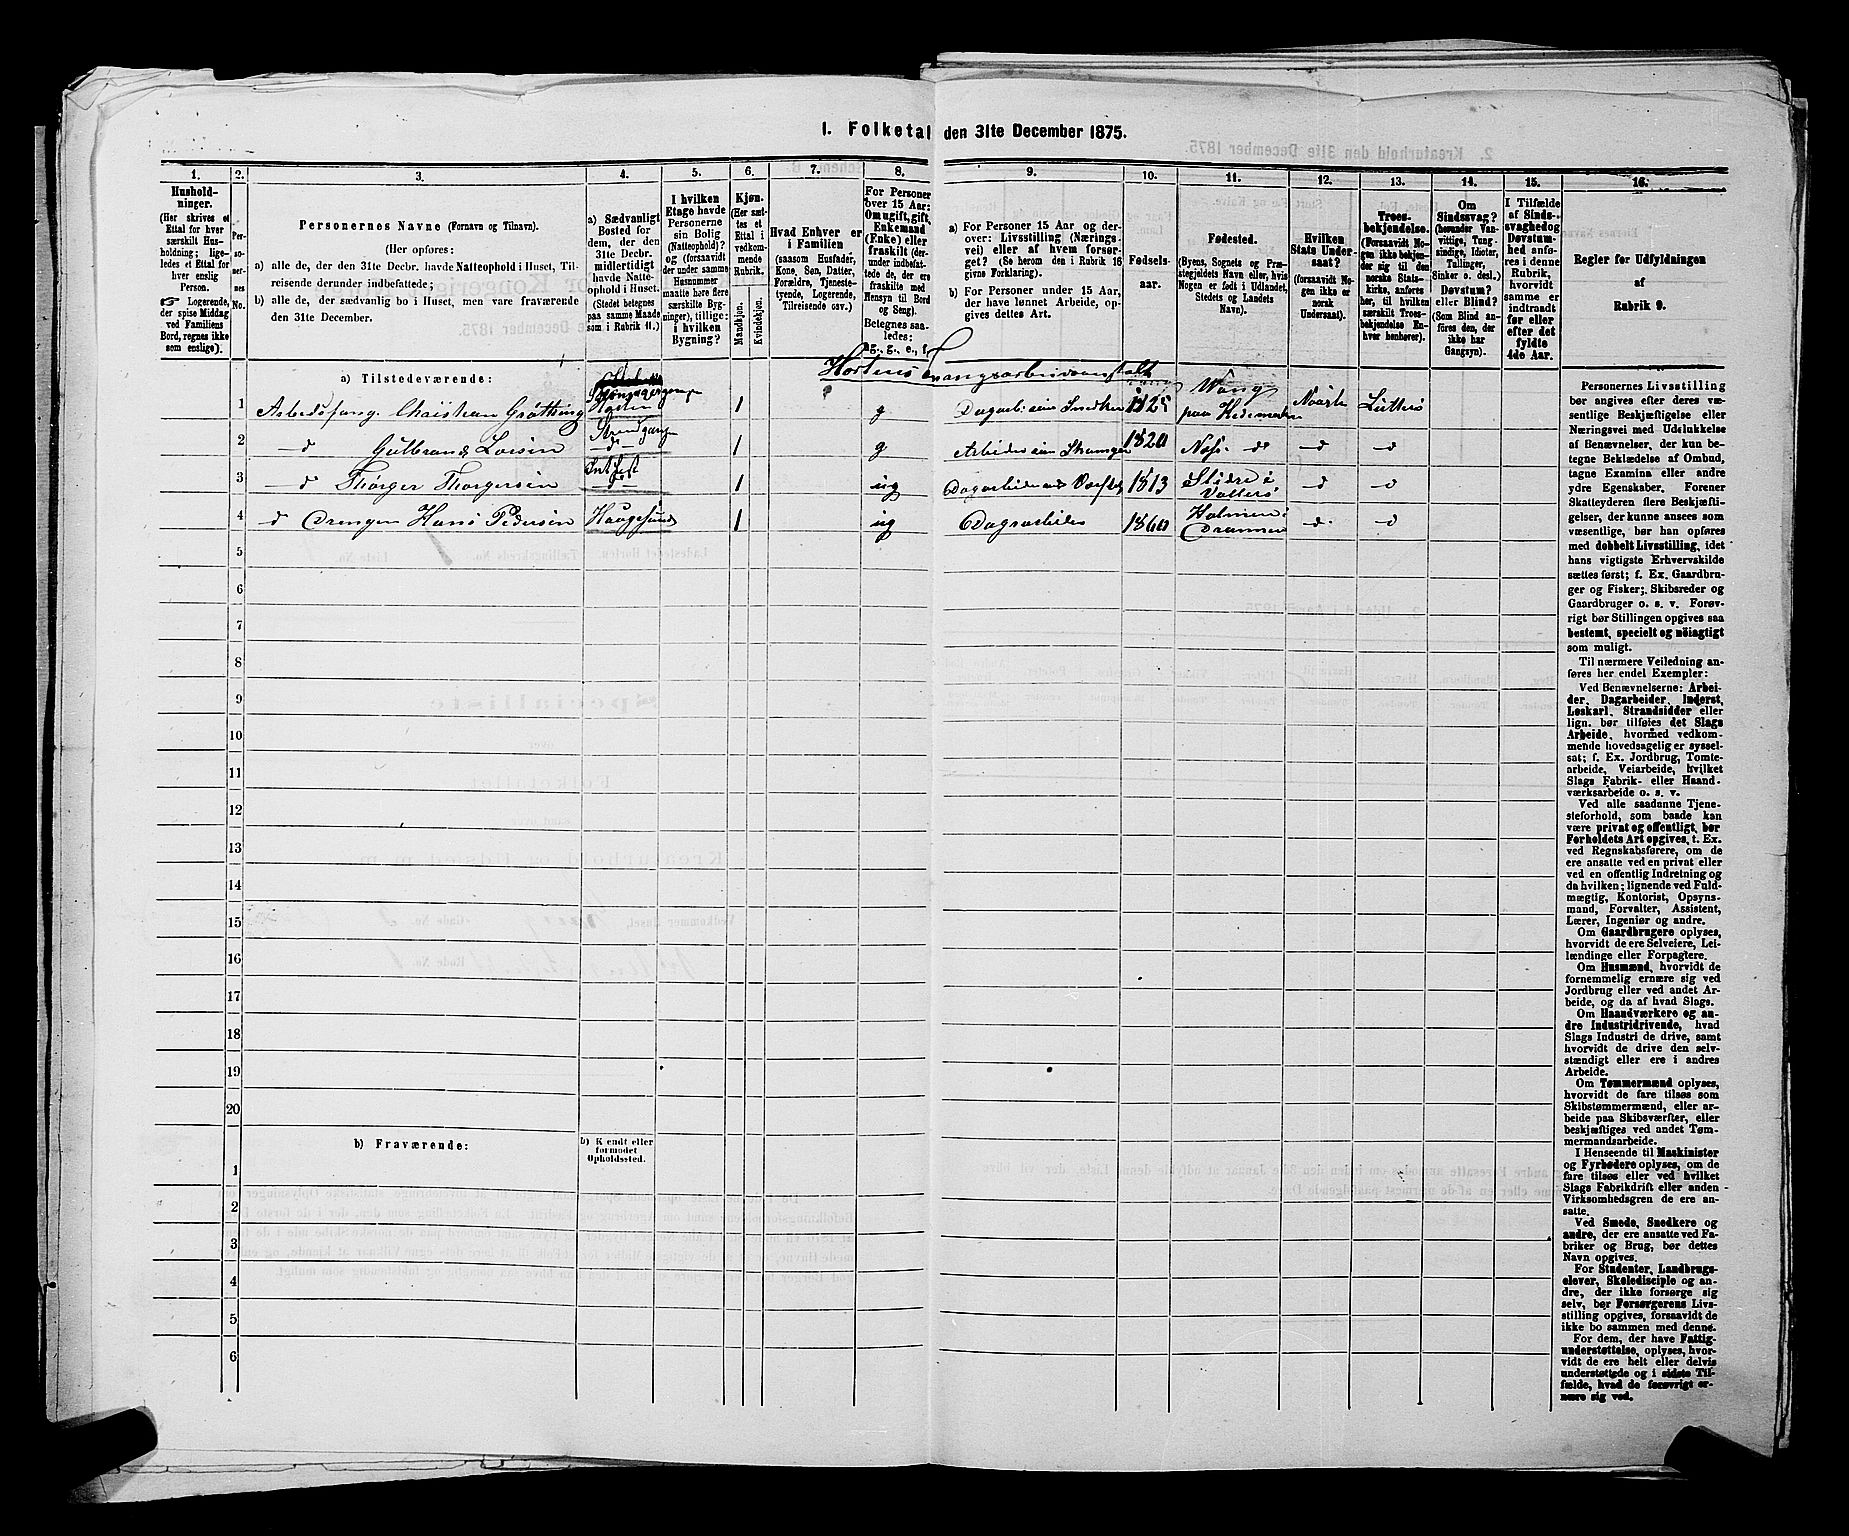 1. Folketal den 31te December 1875.
1.
Hushold-
ninger.
(Her skrives et
Ettal for hver
særskilt Hus-
holdning; lige-
ledes et Ettal for
hver enslig
Person.
☞ Logerende,
der spise Middag
ved Familiens
Bord, regnes ikke
som enslige).
2.
Per-
so-
ner-
nes
No.
3.
Personernes Navne (Fornavn og Tilnavn).
(Her opføres:
a) alle de, der den 31te Decbr. havde Natteophold i Huset, Til-
reisende derunder indbefattede;
b) alle de, der sædvanlig bo i Huset, men vare fraværende
den 31te December.
4.
a) Sædvanligt
Bosted for
dem, der den
31te Decbr.
midlertidigt
havde Natte-
ophold i Huset.
(Stedet betegnes
paa samme Maade
som i Rubrik 11.)
5.
I hvilken
Etage havde
Personerne
sin Bolig
(Natteophold)?
og (forsaavidt
der under samme
Husnummer
maatte høre flere
særskilte Byg-
ninger), tillige:
i hvilken
Bygning?
6.
Kjøn.
(Her sæt-
tes et
Ettal i
vedkom-
mende
Rubrik.
Mandkjøn.
Kvindekjøn.
7.
Hvad Enhver er
i Familien
(saasom Husfader,
Kone, Søn, Datter,
Forældre, Tjeneste-
tyende, Logerende,
Tilreisende osv.)
8.
For Personer
over 15 Aar:
Om ugift, gift,
Enkemand
(Enke) eller
fraskilt (der-
under indbefat-
tede de, der ere
fraskilte med
Hensyn til Bord
og Seng).
Betegnes saa-
ledes:
ug., g., e., f.
9.
a) For Personer 15 Aar og der-
over: Livsstilling (Nærings-
vei) eller af hvem forsør-
get? (Se herom den i Rubrik 16
givne Forklaring).
b) For Personer under 15 Aar,
der have lønnet Arbeide, op-
gives dettes Art.
10.
Fødsels-
aar.
11.
Fødested.
(Byens, Sognets og Præ-
stegjeldets Navn eller, hvis
Nogen er født i Udlandet,
Stedets og Landets
Navn).
12.
Hvilken
Stats Under-
saat?
(forsaavidt No-
gen ikke er
norsk
Undersaat).
13.
Troes-
bekjendelse.
(Forsaavidt No-
gen ikke bekjen-
der sig til den
norske Stats-
kirke, anføres
her, til hvilken
særskilt Troes-
bekjendelse En-
hver henhører).
14.
Om
Sindssvag?
(herunder Van-
vittige, Tung-
sindige, Idioter,
Tullinger,
Sinker o. desl.)
Døvstum?
eller Blind?
(Som Blind an-
føres den, der
ikke har
Gangsyn).
15.
I Tilfælde
af Sinds-
svaghed og
Døvstum-
hed anfø-
res i denne
Rubrik,
hvorvidt
samme er
indtraadt
før eller
efter det
fyldte
4de Aar.
16.
Regler for Udfyldningen
af
Rubrik 9.
Hortens Tvangsarbeidsanstalt
a) Tilstedeværende:
1 Arbeidsfang. Christian Grøtting Horten 1 g Dagarbeider Snedker 1825 Wang paa Hedemarken Norsk Luthers
2 — d Gulbrand Larsen — d — 1 g 1820 Næs — d — — d — d
3 — d Thorger Thorgersen — d — 1 ug 1813 — d — d
4 — d Drengen Hans Pedersen Haugesund 1 ug Dagarbeider 1860 Holmen i Drammen — d — d
5
6
7
8
9
10
11
12
13
14
15
16
17
18
19
20
b) Fraværende:
b) Kjendt eller
formodet
Opholdssted.
1
2
3
4
5
6
Personernes Livsstilling
bør angives efter deres væ-
sentlige Beskjæftigelse eller
Næringsvei med Udelukkelse
af Benævnelser, der kun be-
tegne Beklædelse af Ombud,
tagne Examina eller andre
ydre Egenskaber. Forener
Skatteyderen flere Beskjæfti-
gelser, der kunne ansees som
væsentlige, bør han opføres
med dobbelt Livsstilling, idet
hans vigtigste Erhvervskilde
sættes først; f. Ex. Gaardbru-
ger og Fisker; Skibsreder og
Gaardbruger o. s. v. Forøv-
rigt bør Stillingen opgives saa
bestemt, specielt og nøiagtigt
som muligt.
Til nærmere Veiledning an-
føres her endel Exempler:
Ved Benævnelserne: Arbei-
der, Dagarbeider, Inderst,
Løskarl, Strandsidder eller
lign. bør tilføtes det Slags
Arbeide, hvormed vedkom-
mende hovedsagelig er syssel-
sat; f. Ex. Jordbrug, Tomte-
arbeide, Veiarbeide, hvilket
Slags Fabrik- eller Haand-
værksarbeide o. s. v.
Ved alle saadanne Tjene-
steforhold, som baade kan
være privat og offentligt, bør
Forholdets Art opgives, t. Ex.
ved Regnskabsførere, om de
ere ansatte ved en privat eller
ved en offentlig Indretning og
da hvilken; lignende ved Fuld-
mægtig, Kontorist, Opsyns-
mand, Forvalter, Assistent,
Lærer, Ingeniør og andre.
Om Gaardbrugere oplyses,
hvorvidt de ere Selveiere, Lei-
lændinge eller Forpagtere.
Om Husmænd, hvorvidt de
fornemmelig ernære sig ved
Jordbrug eller ved andet Ar-
beide, og da af hvad Slags.
Om Haandværkere og an-
dre Industridrivende, hvad
Slags Industri de drive, samt
hvorvidt de drive den selv-
stændigt eller ere i andres
Arbeide.
Om Tømmermænd oplyses,
hvorvidt de fare tilsøs som
Skibstømmermænd, eller ar-
beide paa Skibsværfter, eller
beskjæftiges ved andet Tøm-
mermandsarbeide.
I Henseende til Maskinister
og Fyrbødere oplyses, om de
fare tilsøs eller ved hvilket
Slags Fabrikdrift eller anden
Virksomhedsgren de ere an-
satte.
Ved Smede, Snedkere og
andre, der ere ansatte ved Fa-
briker og Brug, bør dettes
Navn opgives.
For Studenter, Landbrugs-
elever, Skoledisciple og an-
dre, der ikke forsørge sig
selv, bør Forsørgerens Livs-
stilling opgives, forsaavidt de
ikke bo sammen med denne.
For dem, der have Fattig-
understøttelse, oplyses, hvor-
vidt de ere helt eller delvis
understøttede og i sidste Til-
fælde, hvad de forøvrigt er-
nære sig ved.